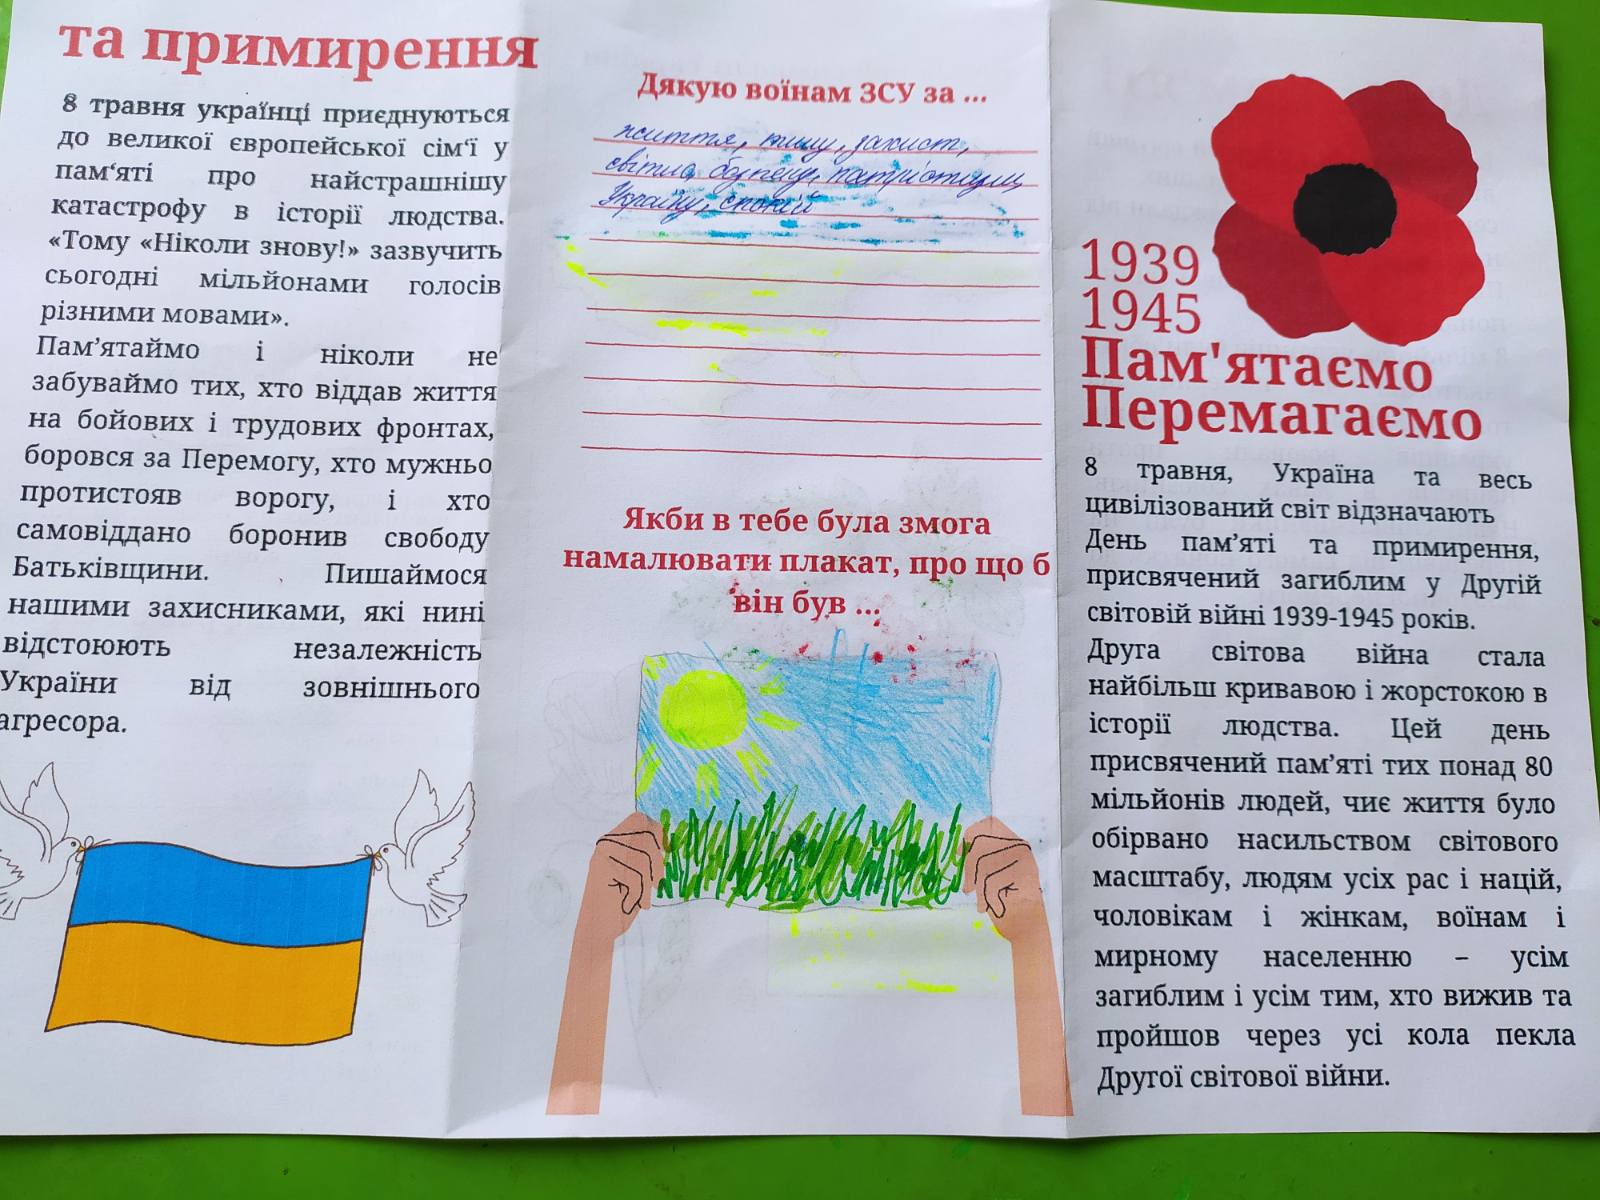 та примирення
8 травня українці приєднуються
до великої європейської сім‘ї у
пам‘яті про найстрашнішу
катастрофу в історії людства.
«Тому «Ніколи знову!» зазвучить
сьогодні мільйонами голосів
різними мовами».
Пам’ятаймо і ніколи не
забуваймо тих, хто віддав життя
на бойових і трудових фронтах,
боровся за Перемогу, хто мужньо
протистояв ворогу, і хто
самовіддано боронив свободу
Батьківщини. Пишаймося
нашими захисниками, які нині
відстоюють незалежність
України від зовнішнього
агресора.
Дякую воїнам ЗСУ за ...
життя, тишу, захист,
світло, безпеку, патріотизм,
Україну, спокій
Якби в тебе була змога
намалювати плакат, про що б
він був ...
1939
1945
Пам'ятаємо
Перемагаємо
8 травня, Україна та весь
цивілізований світ відзначають
День пам’яті та примирення,
присвячений загиблим у Другій
світовій війні 1939-1945 років.
Друга світова війна стала
найбільш кривавою і жорстокою в
історії людства. Цей день
присвячений пам’яті тих понад 80
мільйонів людей, чиє життя було
обірвано насильством світового
масштабу, людям усіх рас і націй,
чоловікам і жінкам, воїнам і
мирному населенню – усім
загиблим і усім тим, хто вижив та
пройшов через усі кола пекла
Другої світової війни.